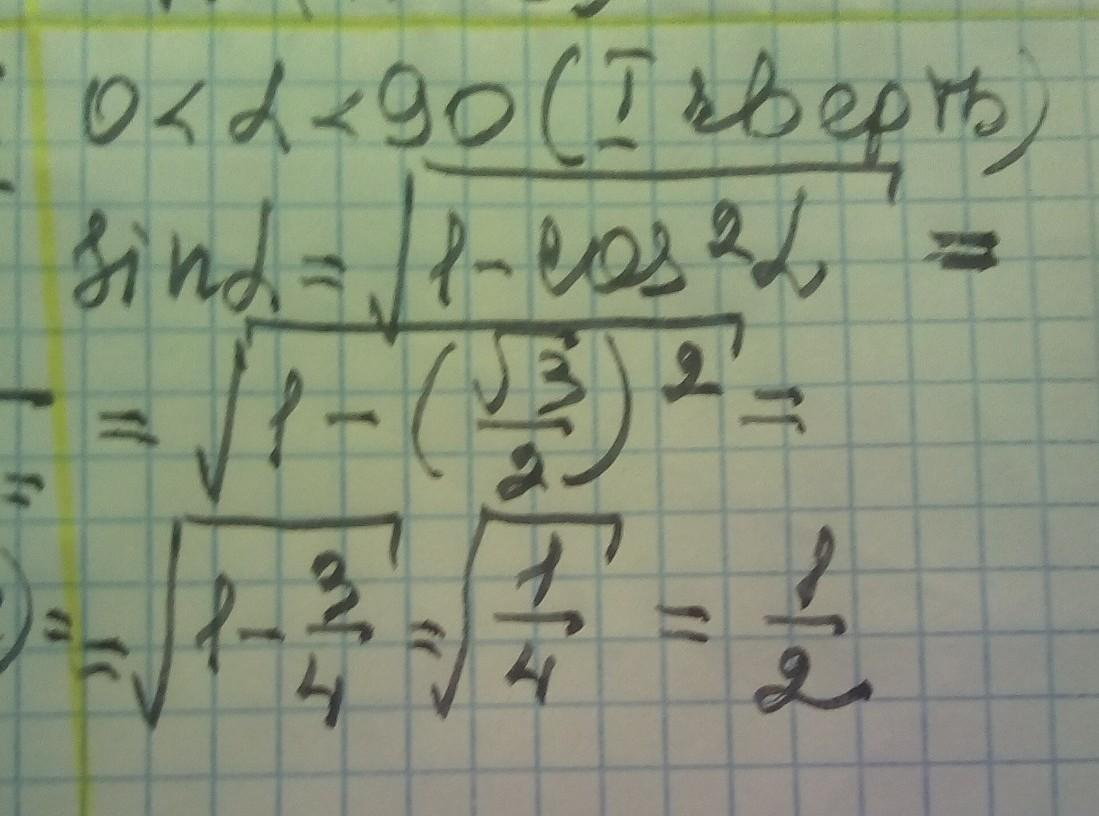 0 < α < 90 (I четверть)
sin α = √(1 - cos²α) =
= √(1 - (√3/2)²) =
= √(1 - 3/4) = √(1/4) = 1/2